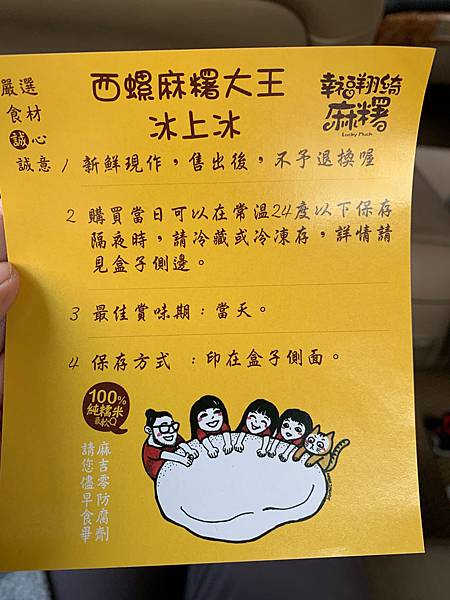 嚴選
食材
誠心
誠意
西螺麻糬大王
冰上冰
幸福翔綺
麻糬
Lucky Pluck
1 新鮮現作，售出後，不予退換喔
2 購買當日可以在常溫24度以下保存
隔夜時，請冷藏或冷凍存，詳情請
見盒子側邊。
3 最佳賞味期：當天。
4 保存方式 ：印在盒子側面。
100%
純糯米
最軟Q
麻吉零防腐劑
請您儘早食畢